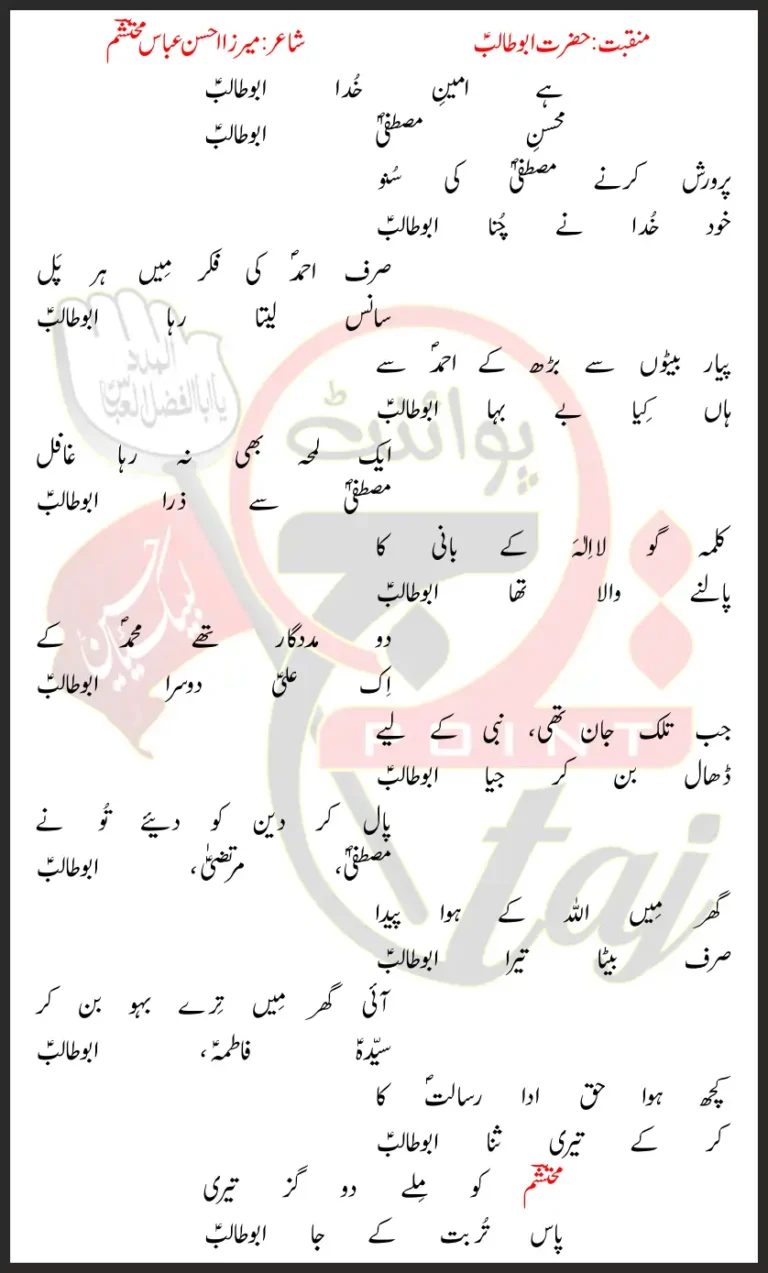 منقبت: حضرت ابوطالبؑ شاعر: میرزا احسن عباس محتشمؔ
ہے امینِ خُدا ابوطالبؑ
محسنِ مصطفیٰؐ ابوطالبؑ
پرورش کرنے مصطفیٰؐ کی سُنو
خود خُدا نے چُنا ابوطالبؑ
صرف احمدؐ کی فکر مِیں ہر پَل
سانس لیتا رہا ابوطالبؑ
پیار بیٹوں سے بڑھ کے احمدؐ سے
ہاں کِیا بے بہا ابوطالبؑ
ایک لمحہ بھی نہ رہا غافل
مصطفیٰؐ سے ذرا ابوطالبؑ
کلمہ گو لااِلٰہَ کے بانی کا
پالنے والا تھا ابوطالبؑ
دو مددگار تھے محمدؐ کے
اِک علیؑ دوسرا ابوطالبؑ
جب تلک جان تھی، نبی کے لیے
ڈھال بن کر جیا ابوطالبؑ
پال کر دین کو دیئے تُو نے
مصطفیٰؐ، مرتضیٰؑ، ابوطالبؑ
گھر مِیں اللہ کے ہوا پیدا
صرف بیٹا تیرا ابوطالبؑ
آئی گھر مِیں تِرے بہو بن کر
سیّدہؑ فاطمہؑ، ابوطالبؑ
کچھ ہوا حق ادا رسالتؐ کا
کر کے تیری ثنا ابوطالبؑ
محتشمؔ کو مِلے دو گز تیری
پاس تُربت کے جا ابوطالبؑ
المدد
یا اباالفضل العباس
لبیک یا حسین
پوائنٹ
تاج
POINT
taj